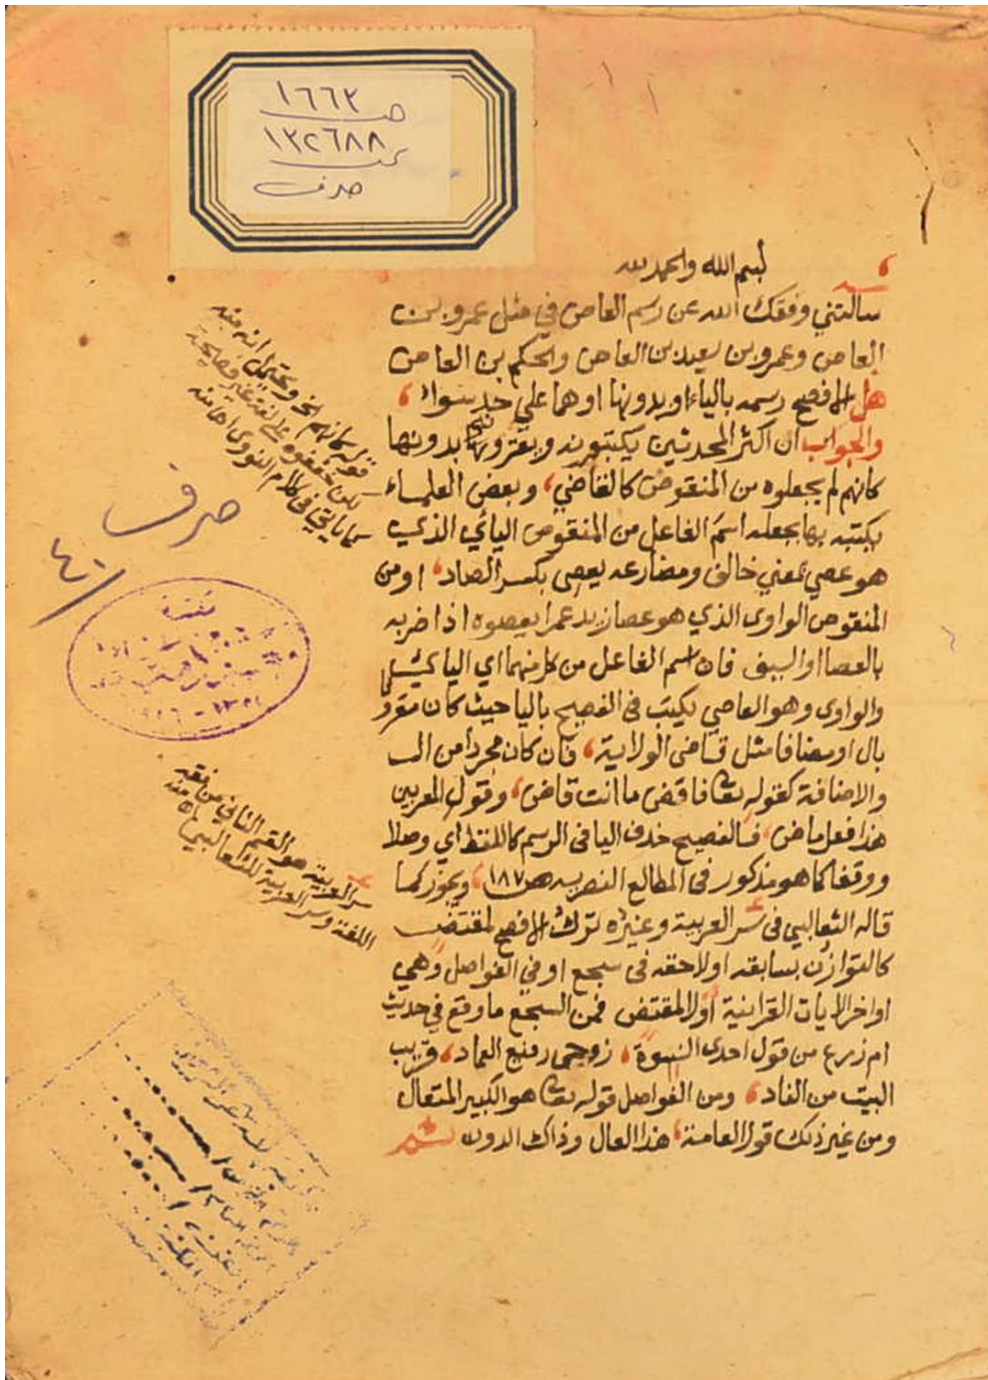 ١٦٦٣
صـ
١٣٢٦٨٨
صرف
بسم الله والحمد لله
سالتني وفقك الله عن رسم العاص في مثل عمرو بن
العاص وعمرو بن سعيد بن العاص والحكم بن العاص
هل الافصح رسمه بالياء او بدونها او هما علي حد سواء ،
والجواب ان اكثر المحدثين يكتبونه ويقرونه بدونها
كانهم لم يجعلوه من المنقوص كالقاضي ، وبعض العلماء
يكتبه بها بجعله اسم الفاعل من المنقوص اليائي الذي
هو عصي بمعني خالف ومضارعه يعصي بكسر الصاد ، او من
المنقوص الواوى الذي هو عصا زيد عمرا يعصوه اذا ضربه
بالعصا او السيف فان اسم الفاعل من كل منهما اي اليائي
والواوى وهو العاصي يكتب فى الفصيح باليا حيث كان مقرونا
بال او مضافا مثل قاضى الولاية ، فان كان مجردا من ال
والاضافة كقوله تعا فاقض ما انت قاض ، وقول المعربين
هذا فعل ماض ، فالفصيح حذف اليا فى الرسم كاللفظ اي وصلا
ووقفا كما هو مذكور فى المطالع النصريه ص ١٨٧ ، ويجوز كما
قاله الثعالبي فى سر العربية وغيره ترك الافصح لمقتض
كالتوازن بسابقه او لاحقه فى سجع او في الفواصل وهي
اواخر الايات القرانية او لا لمقتض فمن السجع ما وقع في حديث
ام زرع من قول احدى النسوة ، زوجى رفيع العماد ، قريب
البيت من الناد ، ومن الفواصل قوله تعا هو الكبير المتعال
ومن غير ذلك قول العامة ، هذا العال وذاك الدون
قوله كانهم الخ ويحتمل انه منه
لكن حذفوه على لغة غير فصيحة
كما ياتي فى كلام النووى اه منه
صرف
٤٠
سر العربية هو القسم الثاني من فقه
اللغة وسر العربية للثعالبي اه منه